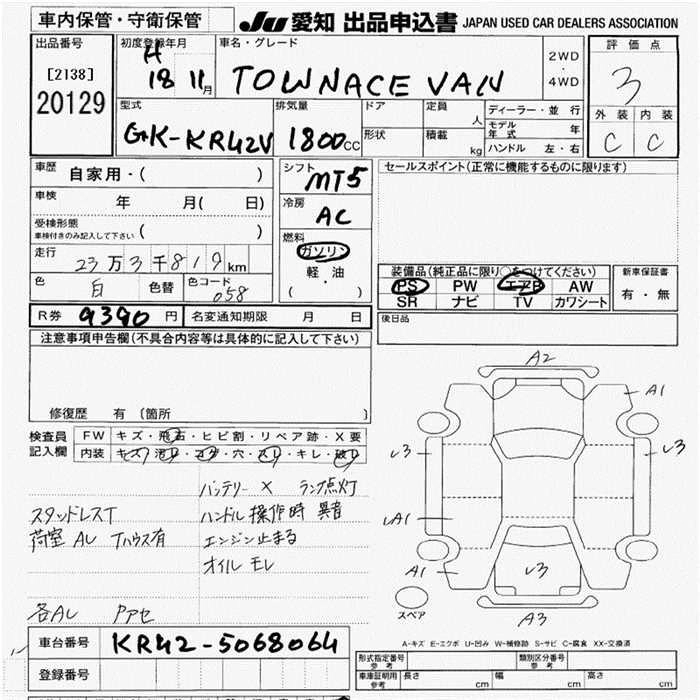 車内保管・守衛保管 JU 愛知 出品申込書 JAPAN USED CAR DEALERS ASSOCIATION
出品番号
[2138]
20129
初度登録年月
H
18 11月
車名・グレード
TOWNACE VAN
2WD
・
4WD
評価点
3
外装 内装
C C
型式
GK-KR42V
排気量
1800cc
ドア
形状
定員
人
積載
kg
ディーラー・並行
モデル年式 年
ハンドル 左・右
車歴 自家用・( )
車検 年 月( 日)
受検形態
車検付きのみ記入して下さい ( )
走行 23万3千819km
色 白 色替 色コード 058
シフト
MT5
冷房
AC
燃料
ガソリン
軽・油
( )
セールスポイント(正常に機能するものに限ります)
装備品(純正品に限り○をつけてください)
PS PW エアB AW
SR ナビ TV カワシート
新車保証書
有・無
R券 9390円 名変通知期限 月 日
後日品
注意事項申告欄(不具合内容等は具体的に記入して下さい)
修復歴 有(箇所 )
検査員
記入欄
FW キズ・飛石・ヒビ割・リペア跡・X要
内装 キズ・汚レ・コゲ・穴・スレ・キレ・破レ
バッテリー X ランプ点灯
スタッドレスT ハンドル操作時 異音
荷室 AL Tハウス有 エンジン止まる
オイルモレ
各AL
A2
A1
レ3
レ3
LA1
A1
レ3
A3
スペア
A-キズ E-エクボ U-凹み W-補修跡 S-サビ C-腐食 XX-交換済
車台番号 KR42-5068064
登録番号
形式指定番号
参考
類別区分番号
参考
車庫証明用
参考
長さ cm 幅 cm 高さ cm